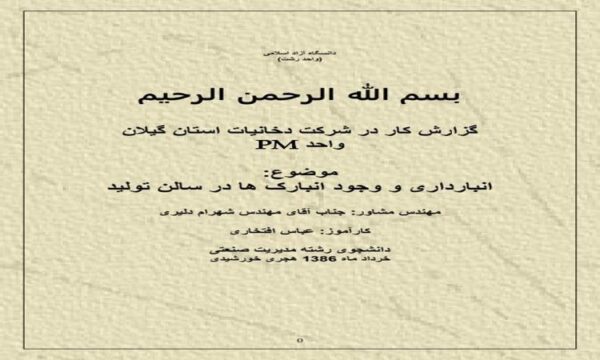 دانشگاه آزاد اسلامی
(واحد رشت)
بسم الله الرحمن الرحیم
گزارش کار در شرکت دخانیات استان گیلان
واحد PM
موضوع:
انبارداری و وجود انبارک ها در سالن تولید
مهندس مشاور: جناب آقای مهندس شهرام دلیری
کارآموز: عباس افتخاری
دانشجوی رشته مدیریت صنعتی
خرداد ماه 1386 هجری خورشیدی
0